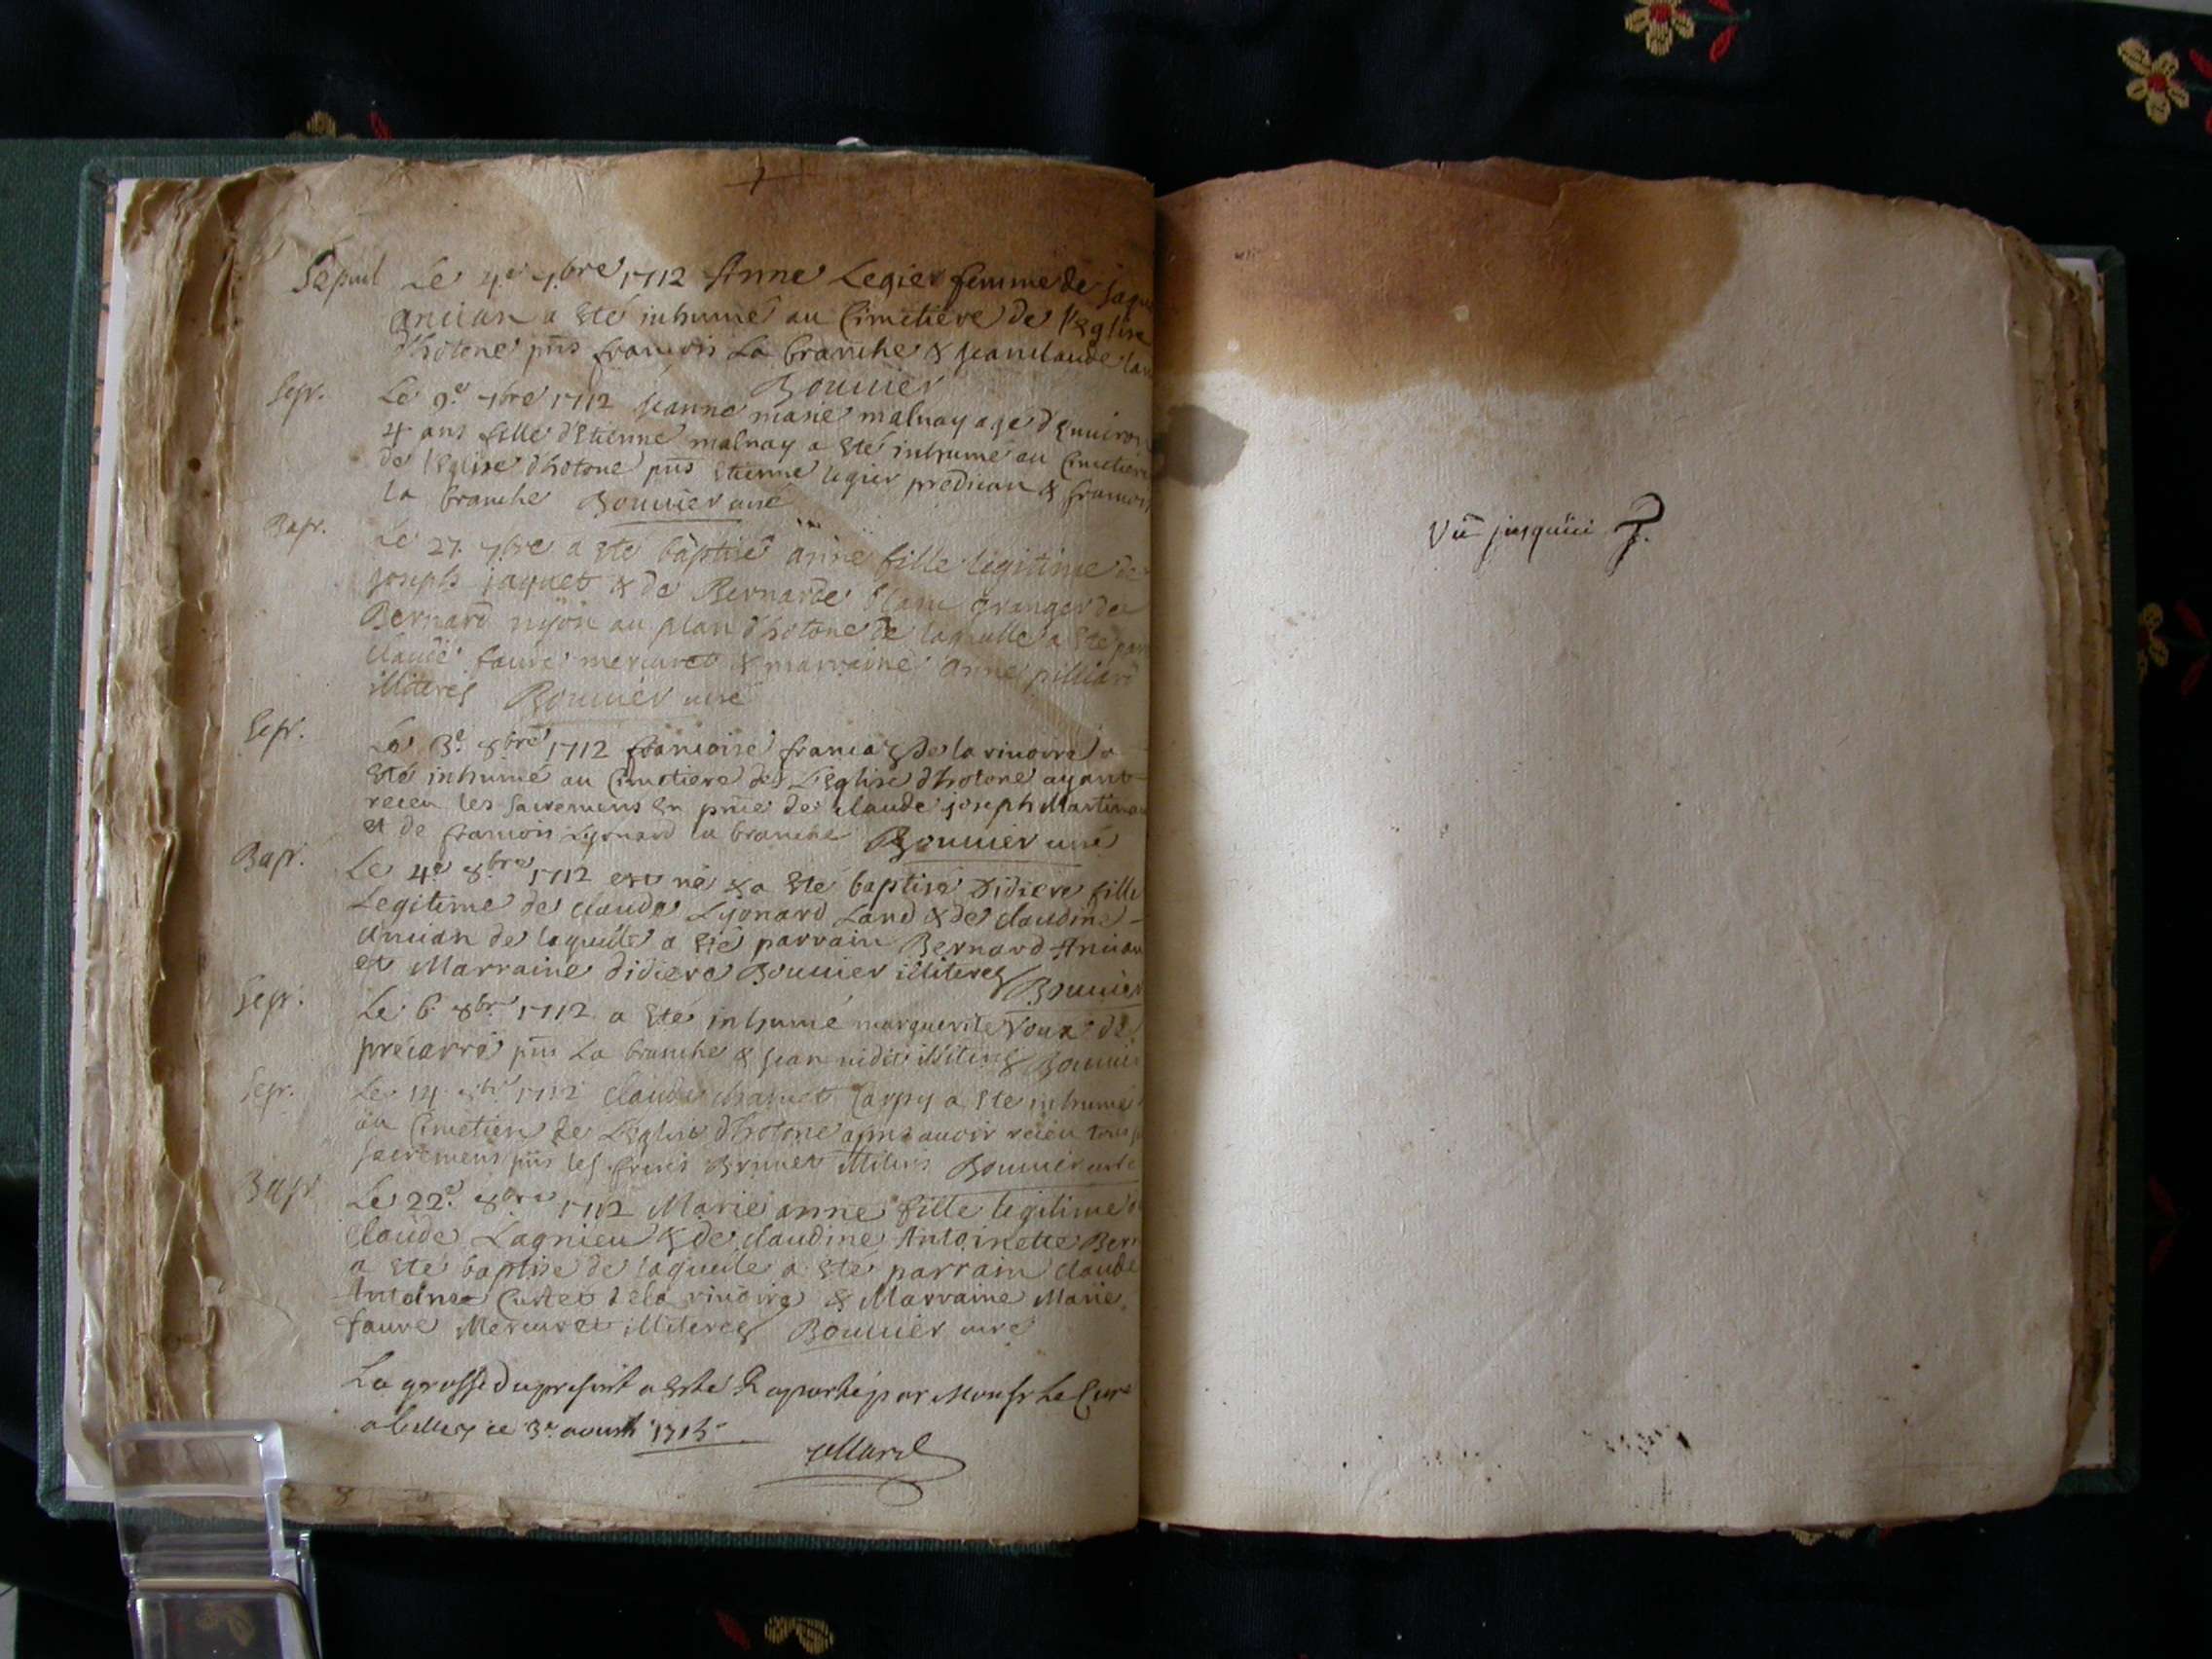 Sepul Le 4.e 7.bre 1712 Anne Legier femme de jaqu
ancian a eté inhumé au Cimetiere de l'Eglise
d'hotone pñs francois La branche & jean claude
Bouuier
Sepr. Le 9.e 7bre 1712 jeanne marie malnay age d'Enuiron
4 ans fille d'Etienne malnay a eté inhumé au Cimetiere
de l'Eglise d'hotone pñs Etienne legier predican & francois
la branche Bouuier curé
Bapt. Le 27. 7.bre a eté baptisé anne fille legitime de
joseph jaquet & de Bernarde granger de
Bernard nyon au plan d'hotone de laquelle a eté parr
claude faure mercuret & marraine anne pilliard
illiteres Bouuier curé
Sepr. Le 3.e 8bre 1712 francoise de la riuoire a
eté inhumé au Cimetiere de L'Eglise d'hotone ayant
receu les sacremens En pñce de claude joseph Martin
et de francois Lyonard la branche Bouuier curé
Bapt. Le 4.e 8.bre 1712 est né & a eté baptisé Didiere fille
Legitime de claude Lyonard Land & de claudine
ancian de laquelle a eté parrain Bernard Ancian
et Marraine didiere Bouuier illiteres Bouuier
Sepr. Le 6. 8br. 1712 a eté inhumé marguerite Roux de
preciarre pñs La branche & jean illiteres Bouuier
Sepr. Le 14. 8br. 1712 claude Carpy a eté inhumé
au Cimetiere de L'Eglise d'hotone apres auoir receu tous
sacremens pñs les freres Brunet illiteres Bouuier curé
Bapt Le 22.e 8bre 1712 Marie anne fille legitime d
claude Lagnieu & de claudine Antoinette Ber
a eté baptisé de laquelle a eté parrain claude
Antoine Curtet de la riuoire & Marraine Marie
faure Mercuret illiteres Bouuier curé
La grosse du present a esté Raportée par Monsr Le Curé
a belley ce 3.e aoust 1713
Vü jusquici